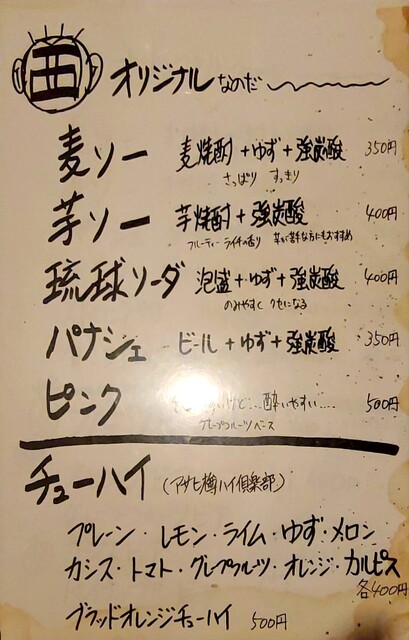 西 オリジナルなのだ
麦ソー 麦焼酎+ゆず+強炭酸 350円
さっぱり すっきり
芋ソー 芋焼酎+強炭酸 400円
フルーティー ライチの香り 芋が苦手な方にもおすすめ
琉球ソーダ 泡盛+ゆず+強炭酸 400円
のみやすく クセになる
パナシェ ビール+ゆず+強炭酸 350円
ピンク けど...酔いやすい.... 500円
グレープフルーツベース
チューハイ (アサヒ樽ハイ倶楽部)
プレーン・レモン・ライム・ゆず・メロン
カシス・トマト・グレープフルーツ・オレンジ・カルピス
各400円
ブラッドオレンジチューハイ 500円